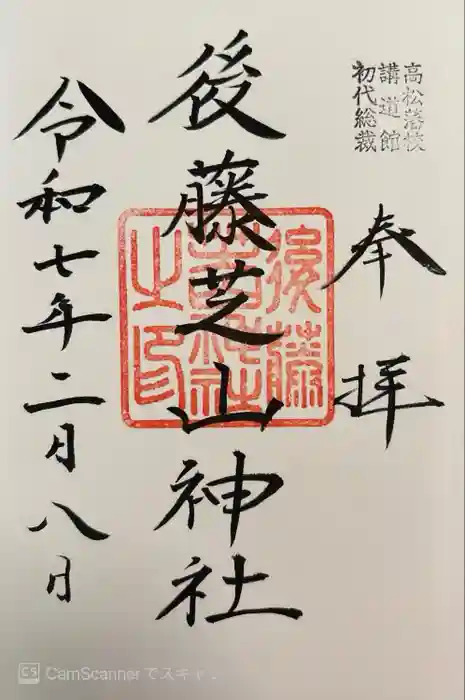 高松藩校
講道館
初代総裁
奉拝
後藤芝山神社
後藤
芝山神社
之印
令和七年二月八日
CS CamScannerでスキャ